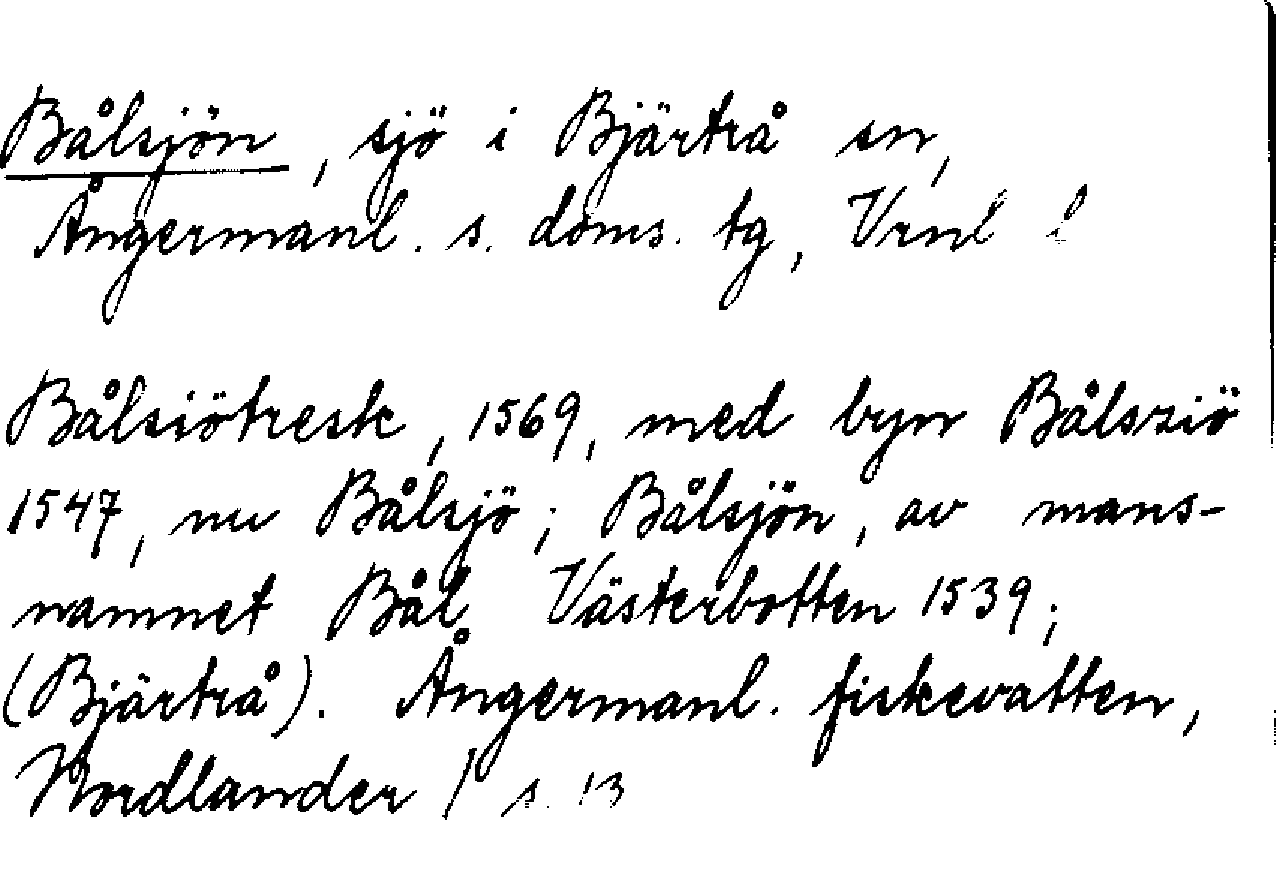 Bålsjön, sjö i Bjärtrå sn,
Ångermanl. s. doms. tg, Vrnl l
Bålsiötresk, 1569, med byn Bålsziö
1547, nu Bålsjö; Bålsjön, av mans-
namnet Bål Västerbotten 1539;
(Bjärtrå). Ångermanl. fiskevatten,
Nordlander / s. 13